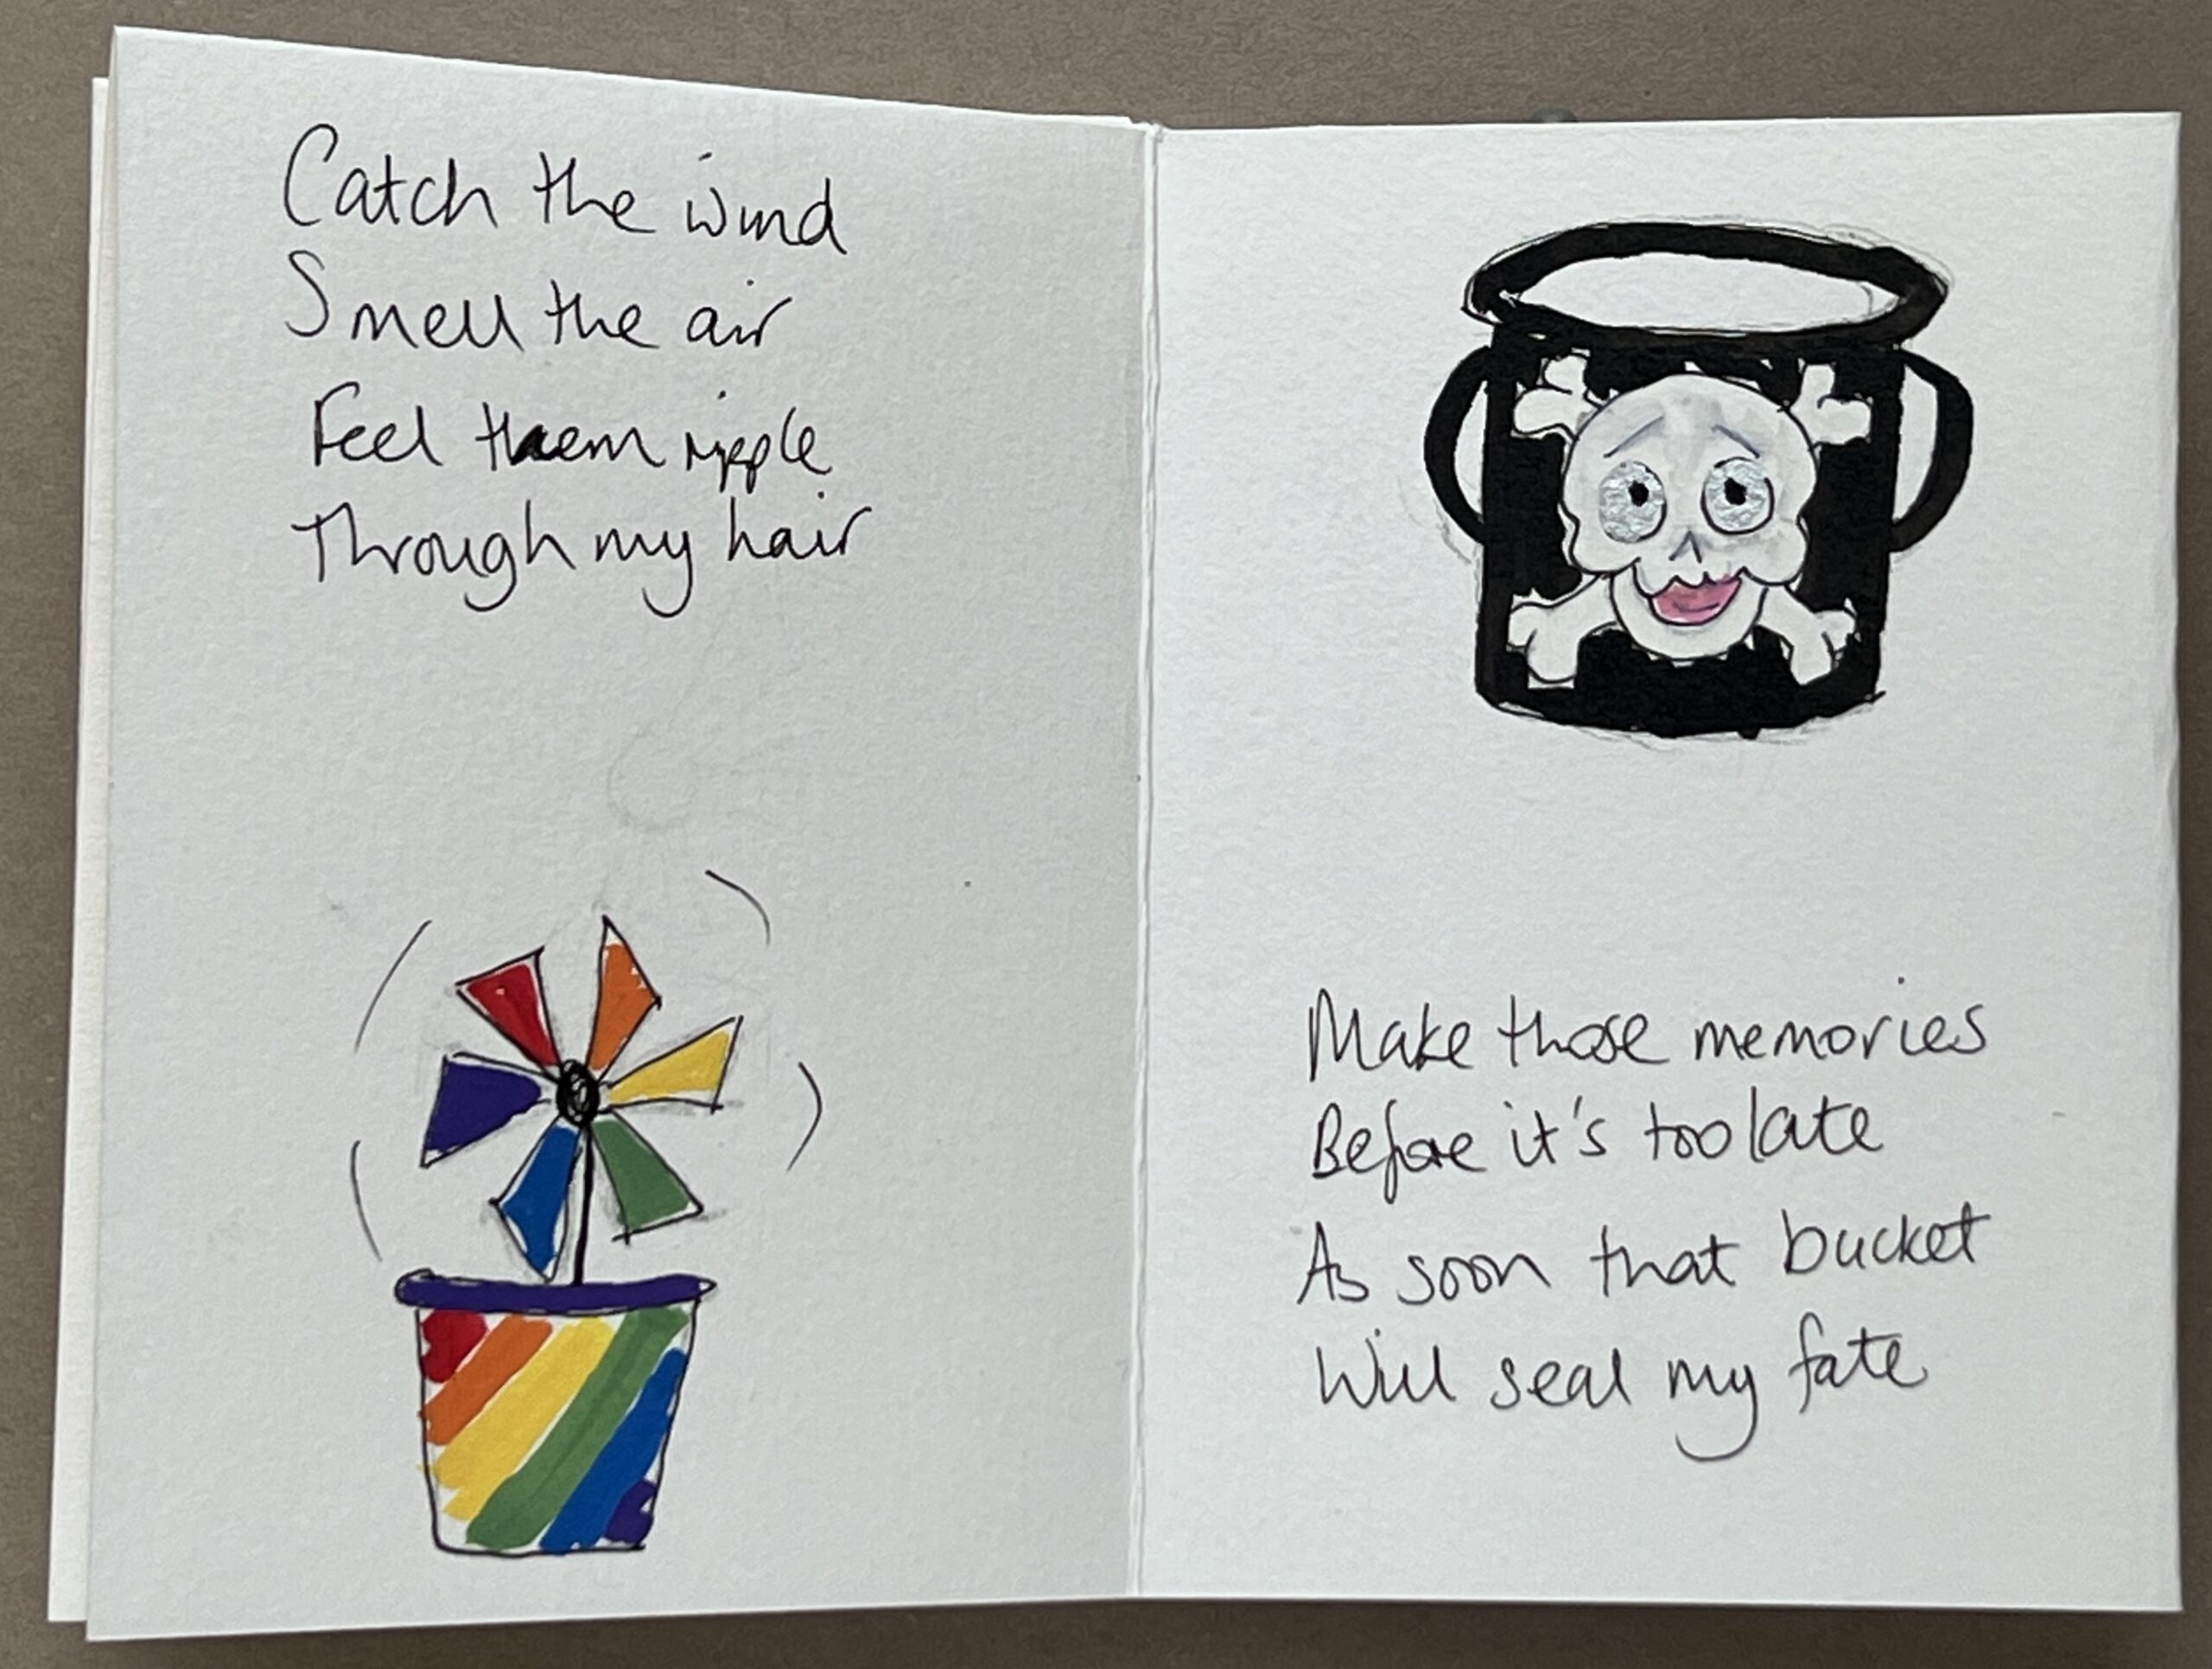 Catch the wind
Smell the air
Feel them ripple
Through my hair
Make those memories
Before it's too late
As soon that bucket
Will seal my fate